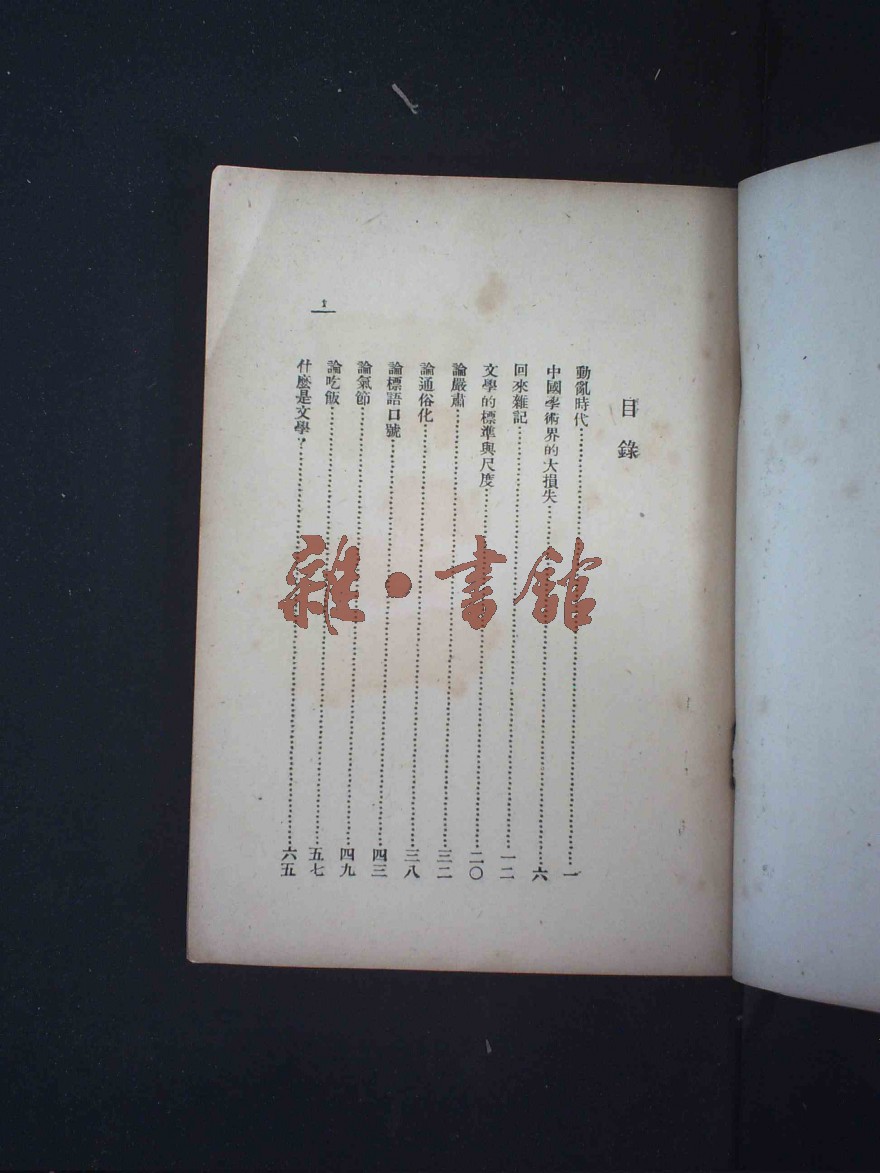 目錄
動亂時代……一
中國學術界的大損失……六
回來雜記……一二
文學的標準與尺度……二〇
論嚴肅……三二
論通俗化……三八
論標語口號……四三
論氣節……四九
論吃飯……五七
什麼是文學？……六五
1
雜·書館